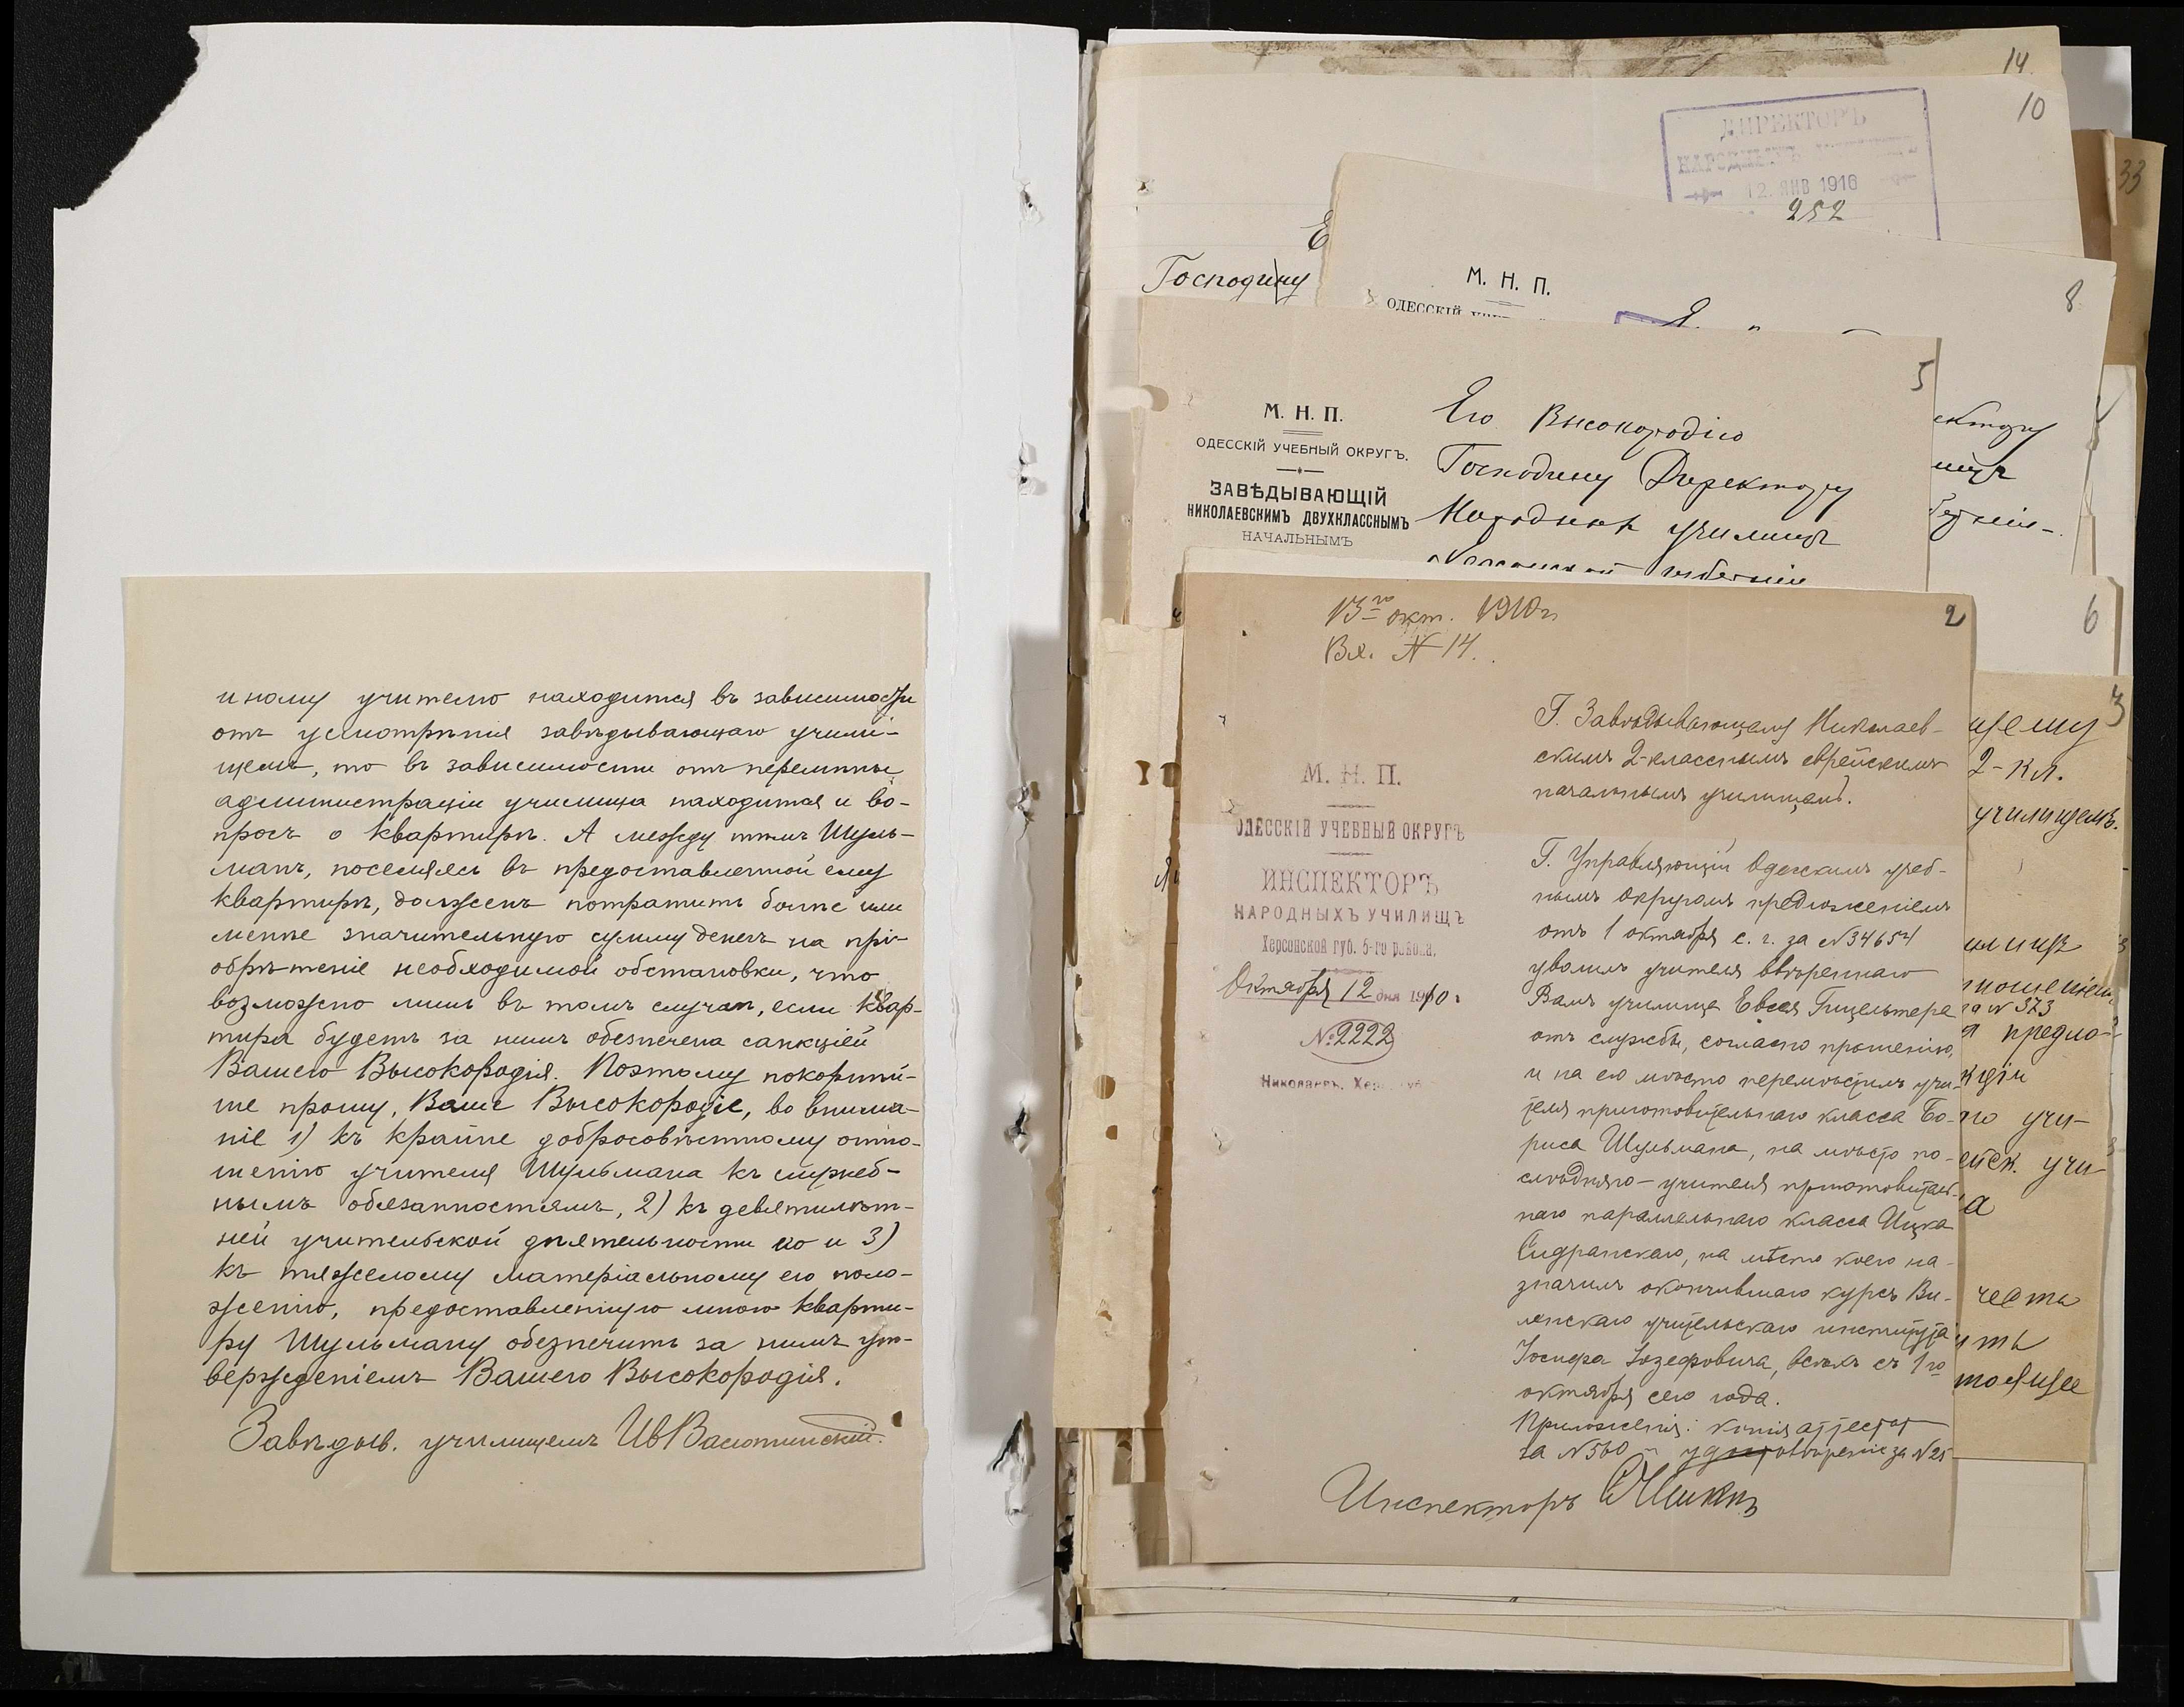 иному учителю находится въ зависимости
отъ усмотрѣнія завѣдывающаго учили-
щемъ, то въ зависимости отъ перемѣны
администраціи училища находится и во-
просъ о квартирѣ. А между тѣмъ Шуль-
манъ, поселяясь въ предоставленной ему
квартирѣ, долженъ потратить болѣе или
менѣе значительную сумму денегъ на прі-
обрѣтеніе необходимой обстановки, что
возможно лишь въ томъ случаѣ, если квар-
тира будетъ за нимъ обезпечена санкціей
Вашего Высокородія. Поэтому покорнѣй-
ше прошу, Ваше Высокородіе, во внима-
ніе 1) къ крайне добросовѣстному отно-
шенію учителя Шульмана къ служеб-
нымъ обязанностямъ, 2) къ девятилѣт-
ней учительской дѣятельности его и 3)
къ тяжелому матеріальному его поло-
женію, предоставленную мною кварти-
ру Шульману обезпечить за нимъ ут-
вержденіемъ Вашего Высокородія.
Завѣдыв. училищемъ Ив Васютинскій.
14
10
ДИРЕКТОРЪ
НАРОДНЫХЪ
12. ЯНВ 1916
252
33
Е
Господину
М. Н. П.
ОДЕССКІЙ
8
5
М. Н. П.
ОДЕССКІЙ УЧЕБНЫЙ ОКРУГЪ.
ЗАВѢДЫВАЮЩІЙ
НИКОЛАЕВСКИМЪ ДВУХКЛАССНЫМЪ
НАЧАЛЬНЫМЪ
Его Высокородію
Господину Директору
Народныхъ училищъ
Херсонской губерніи
ктору
ищъ
6
2
13го окт. 1910 г.
Вх. № 14.
М. Н. П.
ОДЕССКІЙ УЧЕБНЫЙ ОКРУГЪ
ИНСПЕКТОРЪ
НАРОДНЫХЪ УЧИЛИЩЪ
Херсонской губ. 5-го района.
Октября 12 дня 1910 г.
№ 2222
Николаевъ, Хер. губ.
Г. Завѣдывающему Николаев-
скимъ 2-класснымъ еврейскимъ
начальнымъ училищемъ.
Г. Управляющій Одесскимъ учеб-
нымъ округомъ предложеніемъ
отъ 1 октября с. г. за № 34654
уволилъ учителя ввѣреннаго
Вамъ училища Евсея Гицельтера
отъ службы, согласно прошенію,
и на его мѣсто перемѣстилъ учи-
теля приготовительнаго класса Бо-
риса Шульмана, на мѣсто по-
слѣдняго – учителя приготовитель-
наго параллельнаго класса Ицка
Сидранскаго, на мѣсто коего на-
значилъ окончившаго курсъ Ви-
ленскаго учительскаго института
Іосифа Іозефовича, всѣхъ съ 1го
октября сего года.
Приложенія: копія аттестат
за № 560 и удостовѣреніе за № 25
Инспекторъ
3
щему
2-кл.
училищемъ.
илищъ
ношеніем
за № 373
предло-
учи-
ейск. учи
а
честь
ть
тоящее